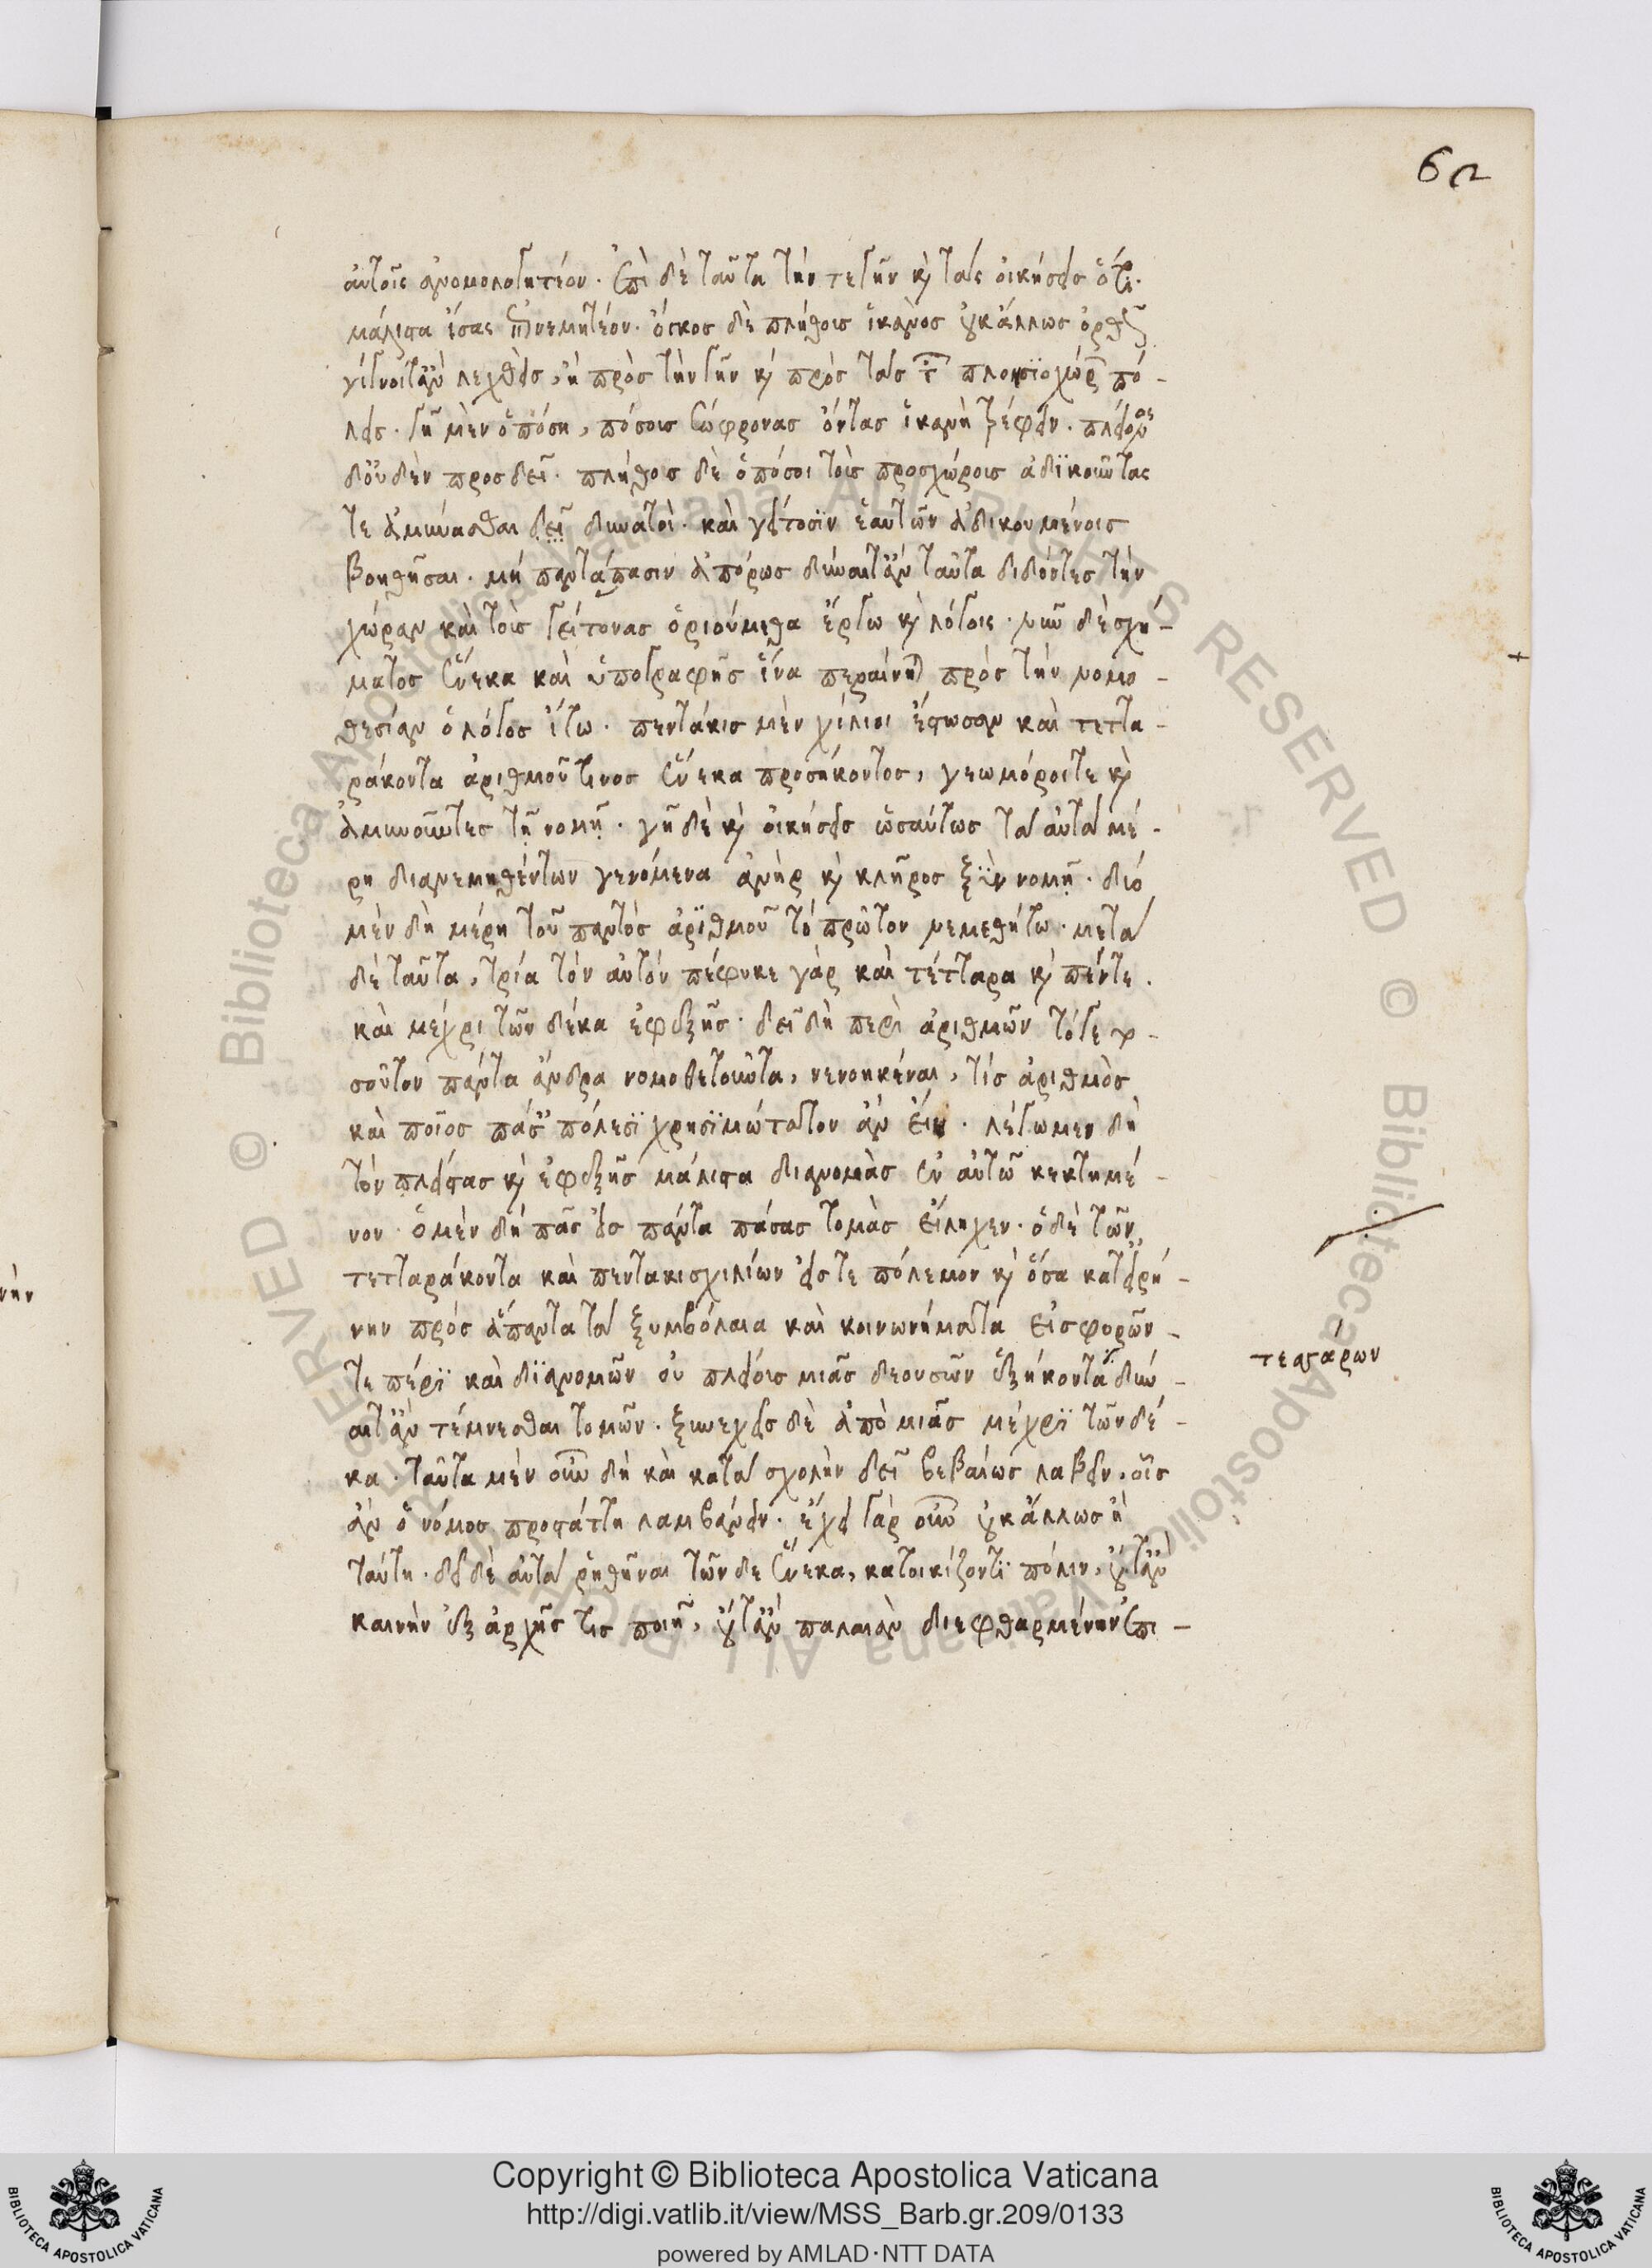 62
αὐτοῖς ἀνομολογητέον. ἐπὶ δὲ ταῦτα τήν τε γῆν κὶ τὰς οἰκήσεις ὅτι
μάλιστα ἴσας ἐπινεμητέον. ὄγκος δὲ πλήθους ἱκανὸς οὐκ ἄλλως ὀρθῶς
γίγνοιτ' ἂν λεχθεὶς, ἢ πρὸς τὴν γῆν κὶ πρὸς τὰς τῶν πλησιοχώρων πό-
λεις. γῆ μὲν ὁπόση, πόσους σώφρονας ὄντας ἱκανὴ τρέφειν. πλείονος
δ' οὐδὲν προσδεῖ. πλήθους δὲ ὁπόσοι τοὺς προσχώρους ἀδικοῦντας
τε ἀμύνασθαι δεῖ δυνατοὶ. καὶ γείτοσιν ἑαυτῶν ἀδικουμένοις
βοηθῆσαι. μὴ παντάπασιν ἀπόρως δύναιτ' ἂν ταῦτα διδόντες τὴν
χώραν καὶ τοὺς γείτονας ὁριούμεθα ἔργω κὶ λόγοις. νῦν δὲ σχή-
ματος ἕνεκα καὶ ὑπογραφῆς ἵνα περαίνηται πρὸς τὴν νομο-
θεσίαν ὁ λόγος ἴτω. πεντάκις μὲν χίλιοι ἔστωσαν καὶ τεττα-
ράκοντα ἀριθμοῦ τινος ἕνεκα προσήκοντος, γεωμόροι τε κὶ
ἀμυνοῦντες τῇ νομῇ. γῆ δὲ κὶ οἰκήσεις ὡσαύτως τὰ αὐτὰ μέ-
ρη διανεμηθέντων γενόμενα ἀνὴρ κὶ κλῆρος ξὺν νομῇ. δύο
μὲν δὴ μέρη τοῦ παντὸς ἀριθμοῦ τὸ πρῶτον νεμεθήτω. μετὰ
δὲ ταῦτα, τρία τὸν αὐτόν πέφυκε γὰρ καὶ τέτταρα κὶ πέντε.
καὶ μέχρι τῶν δέκα ἐφεξῆς. δεῖ δὴ περὶ ἀριθμῶν τόγε το-
σοῦτον πάντα ἄνδρα νομοθετοῦντα, νενοηκέναι, τίς ἀριθμὸς
καὶ ποῖος πάσαις πόλεσι χρησιμώτατον ἂν εἴη. λέγωμεν δὴ
τὸν πλείστας κὶ ἐφεξῆς μάλιστα διανομὰς ἐν αὐτῶ κεκτημέ-
νον. ὁ μὲν δὴ πᾶς εἰς πάντα πάσας τομὰς εἴληχεν. ὁ δὲ τῶν
τετταράκοντα καὶ πεντακισχιλίων εἴς τε πόλεμον κὶ ὅσα κατ' εἰρή-
νην πρὸς ἅπαντα τὰ ξυμβόλαια καὶ κοινωνήματα εἰσφορῶν
τε πέρι καὶ διανομῶν οὐ πλείους μιᾶς δεουσῶν ἑξήκοντα δύν-
αιτ' ἂν τέμνεσθαι τομῶν. ξυνεχεῖς δὲ ἀπὸ μιᾶς μέχρι τῶν δέ-
κα. ταῦτα μὲν οὖν δὴ καὶ κατὰ σχολὴν δεῖ βεβαίως λαβεῖν, οἷς
ἂν ὁ νόμος προστάττη λαμβάνειν. ἔχει γὰρ οὖν οὐκ ἄλλως ἢ
ταύτη. δεῖ δὲ αὐτὰ ῥηθῆναι τῶν δε ἕνεκα, κατοικίζοντι πόλιν, οὔτ' ἂν
καινὴν ἐξ ἀρχῆς τις ποιῇ, οὔτ' ἂν παλαιὰν διεφθαρμένην ἐπι-
τεσσάρων
νὴν
Copyright © Biblioteca Apostolica Vaticana
http://digi.vatlib.it/view/MSS_Barb.gr.209/0133
powered by AMLAD·NTT DATA
BIBLIOTECA APOSTOLICA VATICANA
BIBLIOTECA APOSTOLICA VATICANA